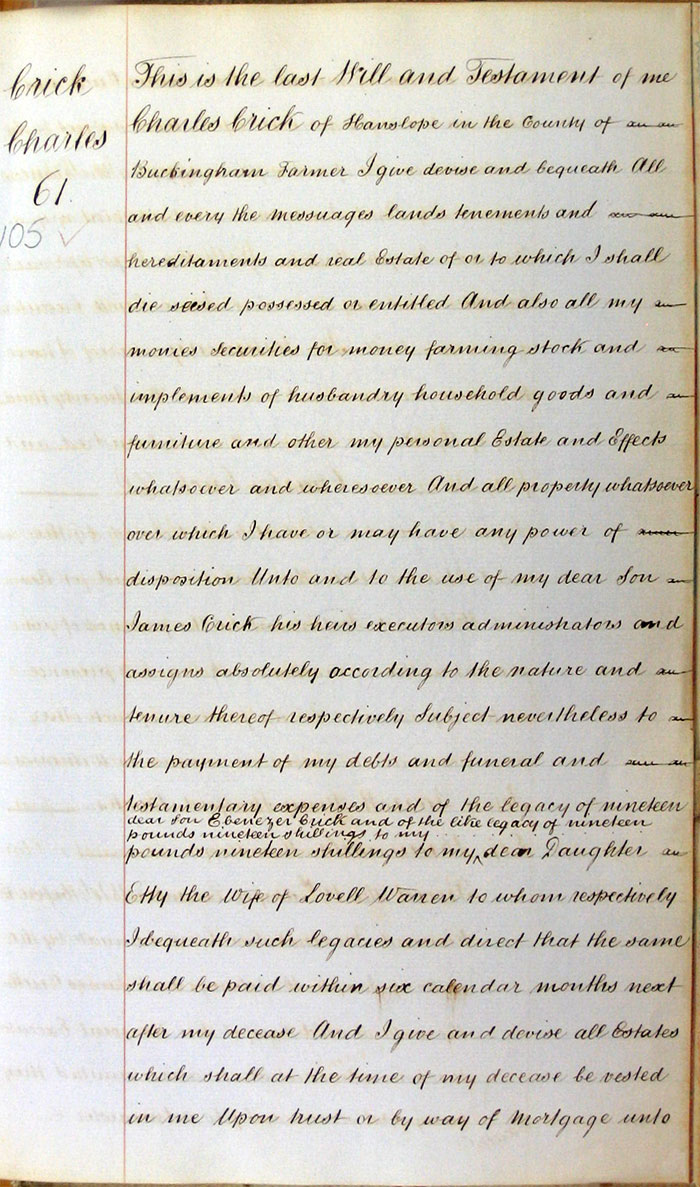 Crick
Charles
61.
105
This is the last Will and Testament of me
Charles Crick of Hanslope in the County of
Buckingham Farmer I give devise and bequeath All
and every the messuages lands tenements and
hereditaments and real Estate of or to which I shall
die seised possessed or entitled And also all my
monies securities for money farming stock and
implements of husbandry household goods and
furniture and other my personal Estate and Effects
whatsoever and wheresoever And all property whatsoever
over which I have or may have any power of
disposition Unto and to the use of my dear Son
James Crick his heirs executors administrators and
assigns absolutely according to the nature and
tenure thereof respectively Subject nevertheless to
the payment of my debts and funeral and
testamentary expenses and of the legacy of nineteen
dear Son Ebenezer Crick and of the like legacy of nineteen
pounds nineteen shillings to my
pounds nineteen shillings to my dear Daughter
Etty the Wife of Lovell Warren to whom respectively
I bequeath such legacies and direct that the same
shall be paid within six calendar months next
after my decease And I give and devise all Estates
which shall at the time of my decease be vested
in me Upon trust or by way of Mortgage unto